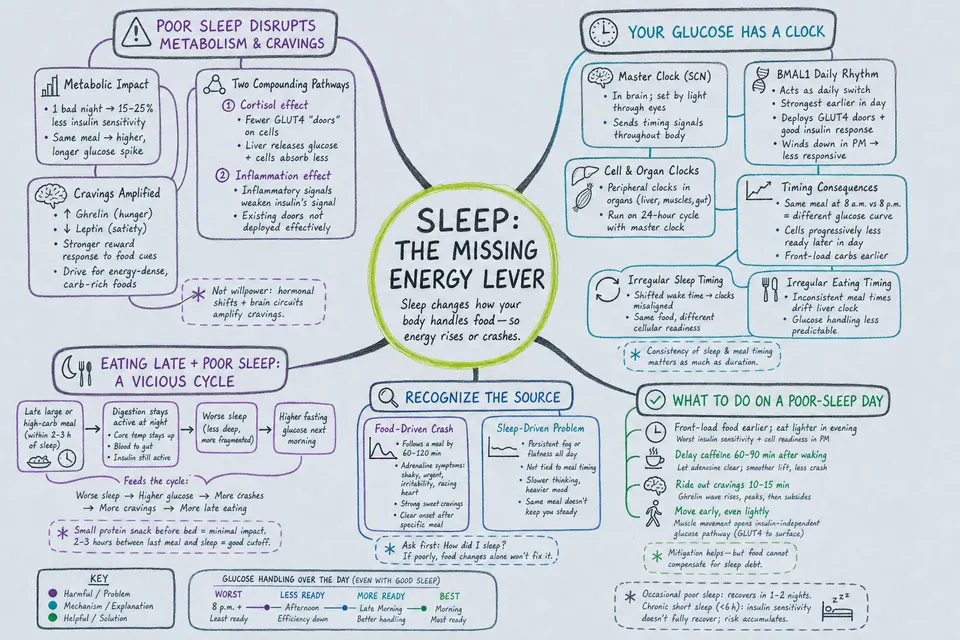 POOR SLEEP DISRUPTS
METABOLISM & CRAVINGS
Metabolic Impact
• 1 bad night → 15–25%
less insulin sensitivity
• Same meal → higher,
longer glucose spike
Two Compounding Pathways
① Cortisol effect
• Fewer GLUT4 "doors"
on cells
• Liver releases glucose
+ cells absorb less
② Inflammation effect
• Inflammatory signals
weaken insulin's signal
• Existing doors not
deployed effectively
Cravings Amplified
• ↑ Ghrelin (hunger)
• ↓ Leptin (satiety)
• Stronger reward
response to food cues
• Drive for energy-dense,
carb-rich foods
* Not willpower: hormonal
shifts + brain circuits
amplify cravings.
YOUR GLUCOSE HAS A CLOCK
Master Clock (SCN)
• In brain; set by light
through eyes
• Sends timing signals
throughout body
BMAL1 Daily Rhythm
• Acts as daily switch
• Strongest earlier in day
• Deploys GLUT4 doors +
good insulin response
• Winds down in PM →
less responsive
Cell & Organ Clocks
• Peripheral clocks in
organs (liver, muscles, gut)
• Run on 24-hour cycle
with master clock
Timing Consequences
• Same meal at 8 a.m. vs 8 p.m.
= different glucose curve
• Cells progressively less
ready later in day
• Front-load carbs earlier
Irregular Sleep Timing
• Shifted wake time → clocks
misaligned
• Same food, different
cellular readiness
Irregular Eating Timing
• Inconsistent meal times
drift liver clock
• Glucose handling less
predictable
* Consistency of sleep & meal timing
matters as much as duration.
SLEEP:
THE MISSING
ENERGY LEVER
Sleep changes how your
body handles food—so
energy rises or crashes.
EATING LATE + POOR SLEEP:
A VICIOUS CYCLE
Late large or
high-carb meal
(within 2–3 h
of sleep)
Digestion stays
active at night
• Core temp stays up
• Blood to gut
• Insulin still active
Worse sleep
(less deep,
more fragmented)
Higher fasting
glucose next
morning
Feeds the cycle:
Worse sleep → Higher glucose → More crashes
→ More cravings → More late eating
* Small protein snack before bed = minimal impact.
2–3 hours between last meal and sleep = good cutoff.
RECOGNIZE THE SOURCE
Food-Driven Crash
• Follows a meal by
60–120 min
• Adrenaline symptoms:
shaky, urgent,
irritability, racing
heart
• Strong sweet cravings
• Clear onset after
specific meal
Sleep-Driven Problem
• Persistent fog or
flatness all day
• Not tied to meal timing
• Slower thinking,
heavier mood
• Same meal doesn't
keep you steady
* Ask first: How did I sleep?
If poorly, food changes alone won't fix it.
WHAT TO DO ON A POOR-SLEEP DAY
Front-load food earlier; eat lighter in evening
Worst insulin sensitivity + cell readiness in PM
Delay caffeine 60–90 min after waking
Let adenosine clear; smoother lift, less crash
Ride out cravings 10–15 min
Ghrelin wave rises, peaks, then subsides
Move early, even lightly
Muscle movement opens insulin-independent
glucose pathway (GLUT4 to surface)
* Mitigation helps—but food cannot
compensate for sleep debt.
* Occasional poor sleep: recovers in 1–2 nights.
Chronic short sleep (<6h): insulin sensitivity
doesn't fully recover; risk accumulates.
zzz
KEY
Harmful / Problem
Mechanism / Explanation
Helpful / Solution
GLUCOSE HANDLING OVER THE DAY (EVEN WITH GOOD SLEEP)
WORST LESS READY MORE READY BEST
8 p.m. + Afternoon Late Morning Morning
Least ready Efficiency down Better handling Most ready